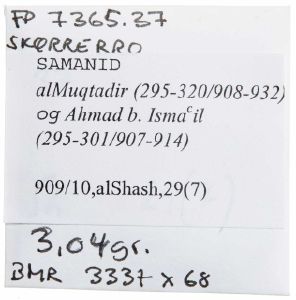 FP 7365.37
SKØRRERRD
SAMANID
alMuqtadir (295-320/908-932)
og Ahmad b. Ismaᶜil
(295-301/907-914)
909/10,alShash,29(7)
3,04gr.
BMR 3337 x 68